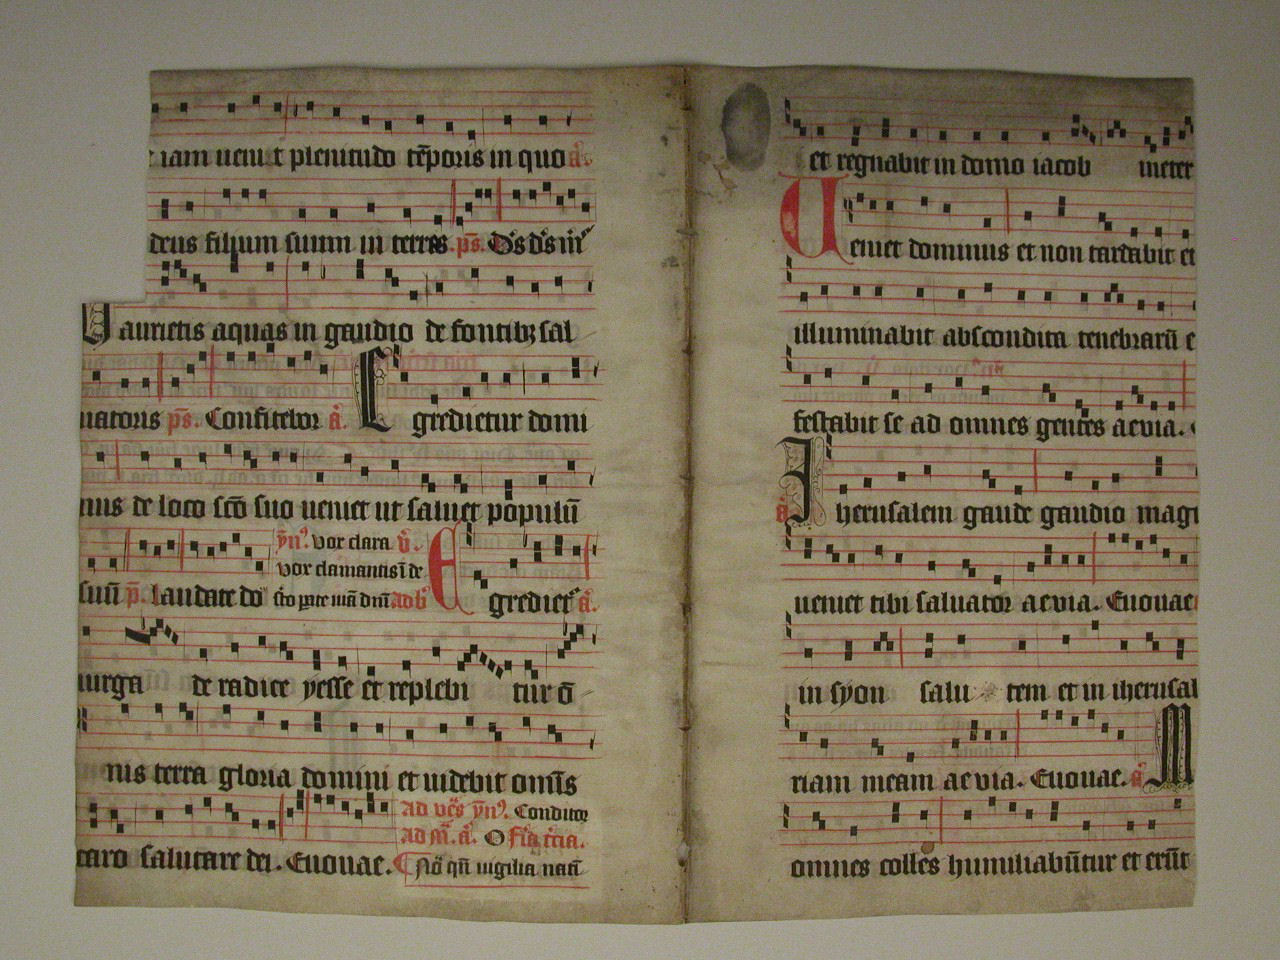 iam uenit plenitudo tēporis in quo
deus filium suum in terras ps̄. Ds ds m
aurietis aquas in gaudio de fontibꝫ sal
uatoris ps̄. Confitebor a.
Egredietur domi
nus de loco scō suo ueniet ut saluet populū
ẏn⁹. vox clara v̇.
vox clamantis ī de
suū p̄. laudate do
ad b
Egrediet a.
uirga de radice yesse et replebi tur ō
nis terra gloria domini et uidebit omīs
caro salutare dei. Euouae.
Ad ves ẏn⁹. Conditor
Ad M. a. O
Nō qn̄ uigilia nati
et regnabit in domo iacob in eter
Ueniet dominus et non tardabit et
illuminabit abscondita tenebrarū e
festabit se ad omnes gentes aeuia.
a Iherusalem gaude gaudio mag
ueniet tibi saluator aeuia. Euouae
in syon salu tem et in iherusal
riam meam aeuia. Euouae. a M
omnes colles humiliabūtur et erūt